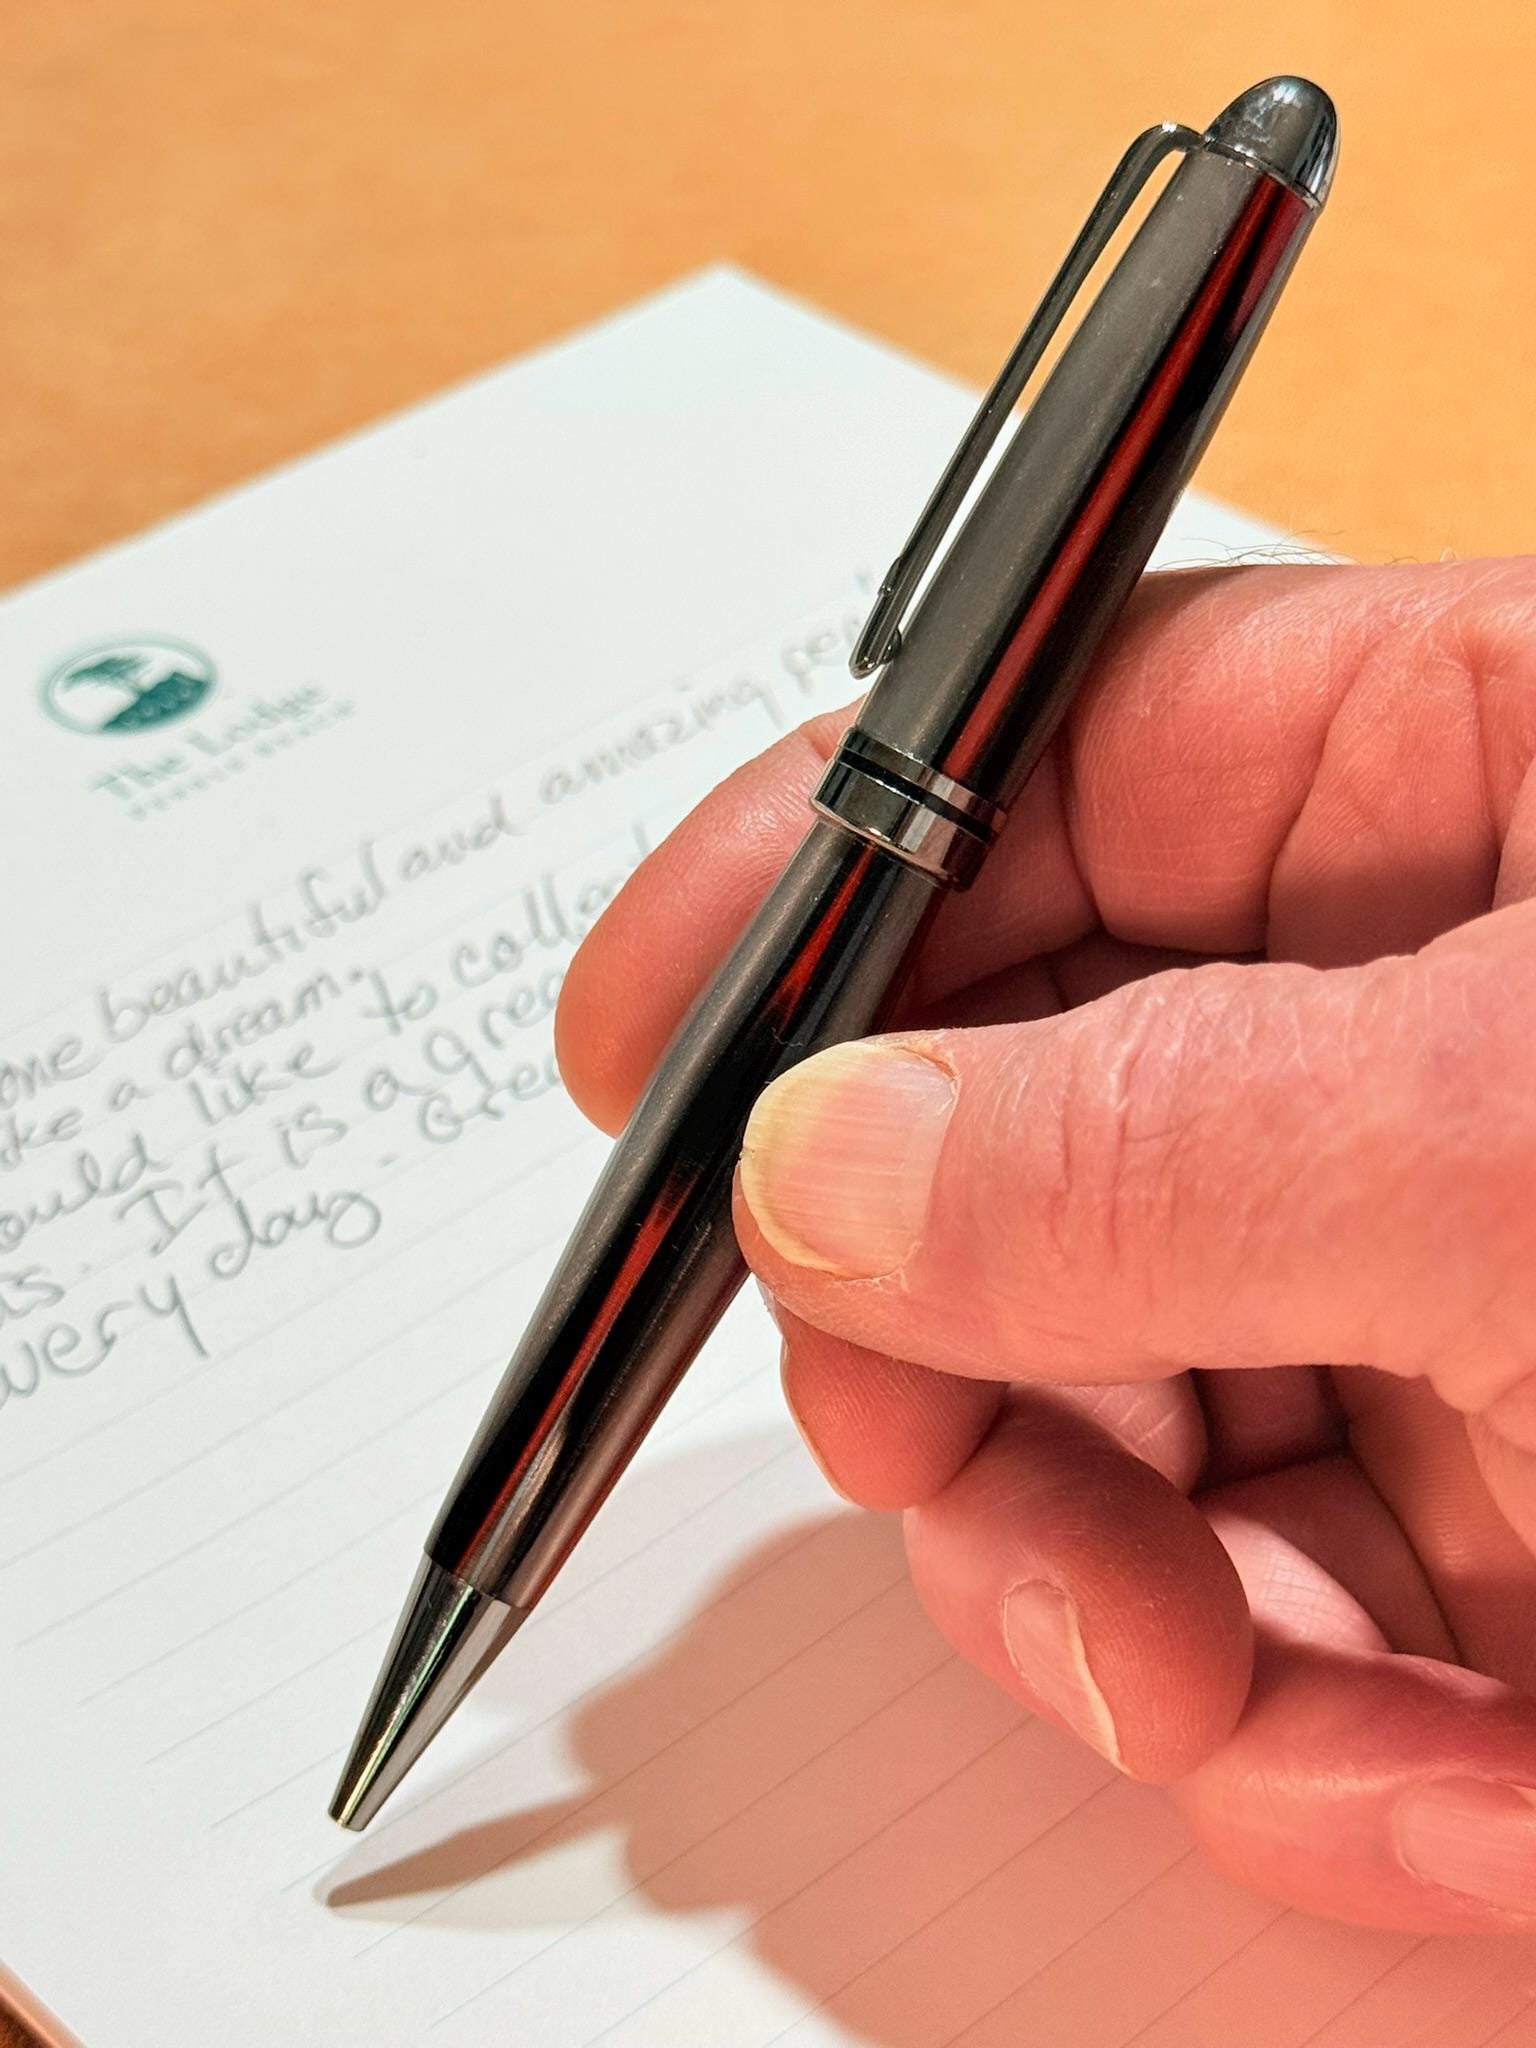 The Lodge
PEBBLE BEACH
one beautiful and amazing
a dream.
would like to collect
It is a
every day.